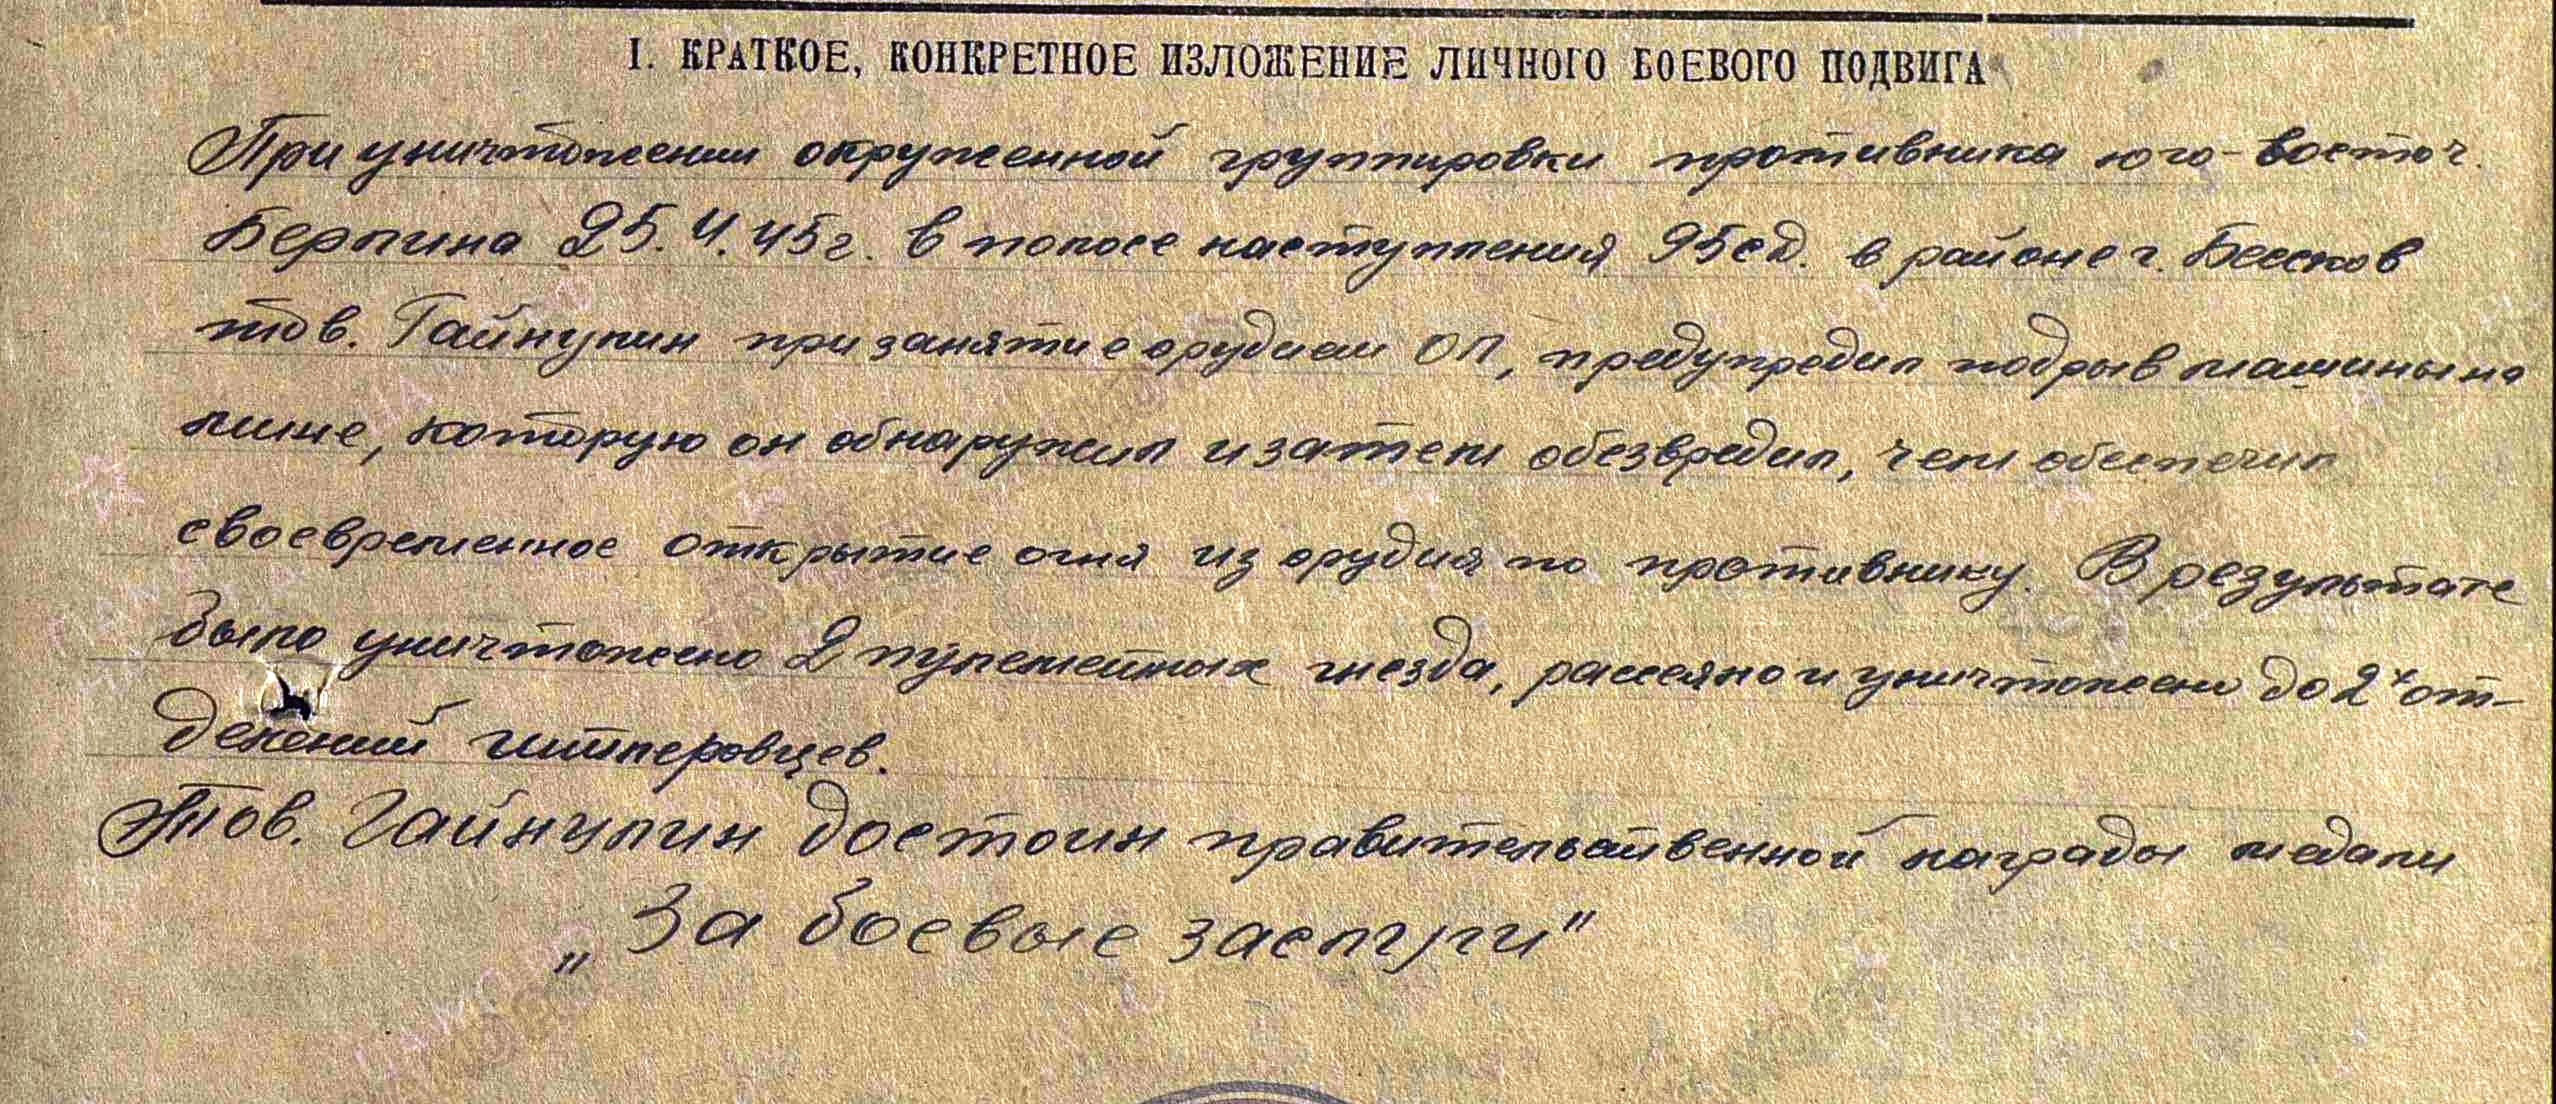 I. КРАТКОЕ, КОНКРЕТНОЕ ИЗЛОЖЕНИЕ ЛИЧНОГО БОЕВОГО ПОДВИГА
При уничтожении окруженной группировки противника юго-восточ.
Берлина 25.4.45г. в полосе наступления 95сд. в районе г. Беесков
тов. Гайнулин при занятие орудием ОП, предупредил подрыв машины на
мине, которую он обнаружил и затем обезвредил, чем обеспечил
своевременное открытие огня из орудия по противнику. В результате
было уничтожено 2 пулеметных гнезда, рассеяно и уничтожено до 2х от-
делений гитлеровцев.
Тов. Гайнулин достоин правительственной награды медали
„За боевые заслуги"